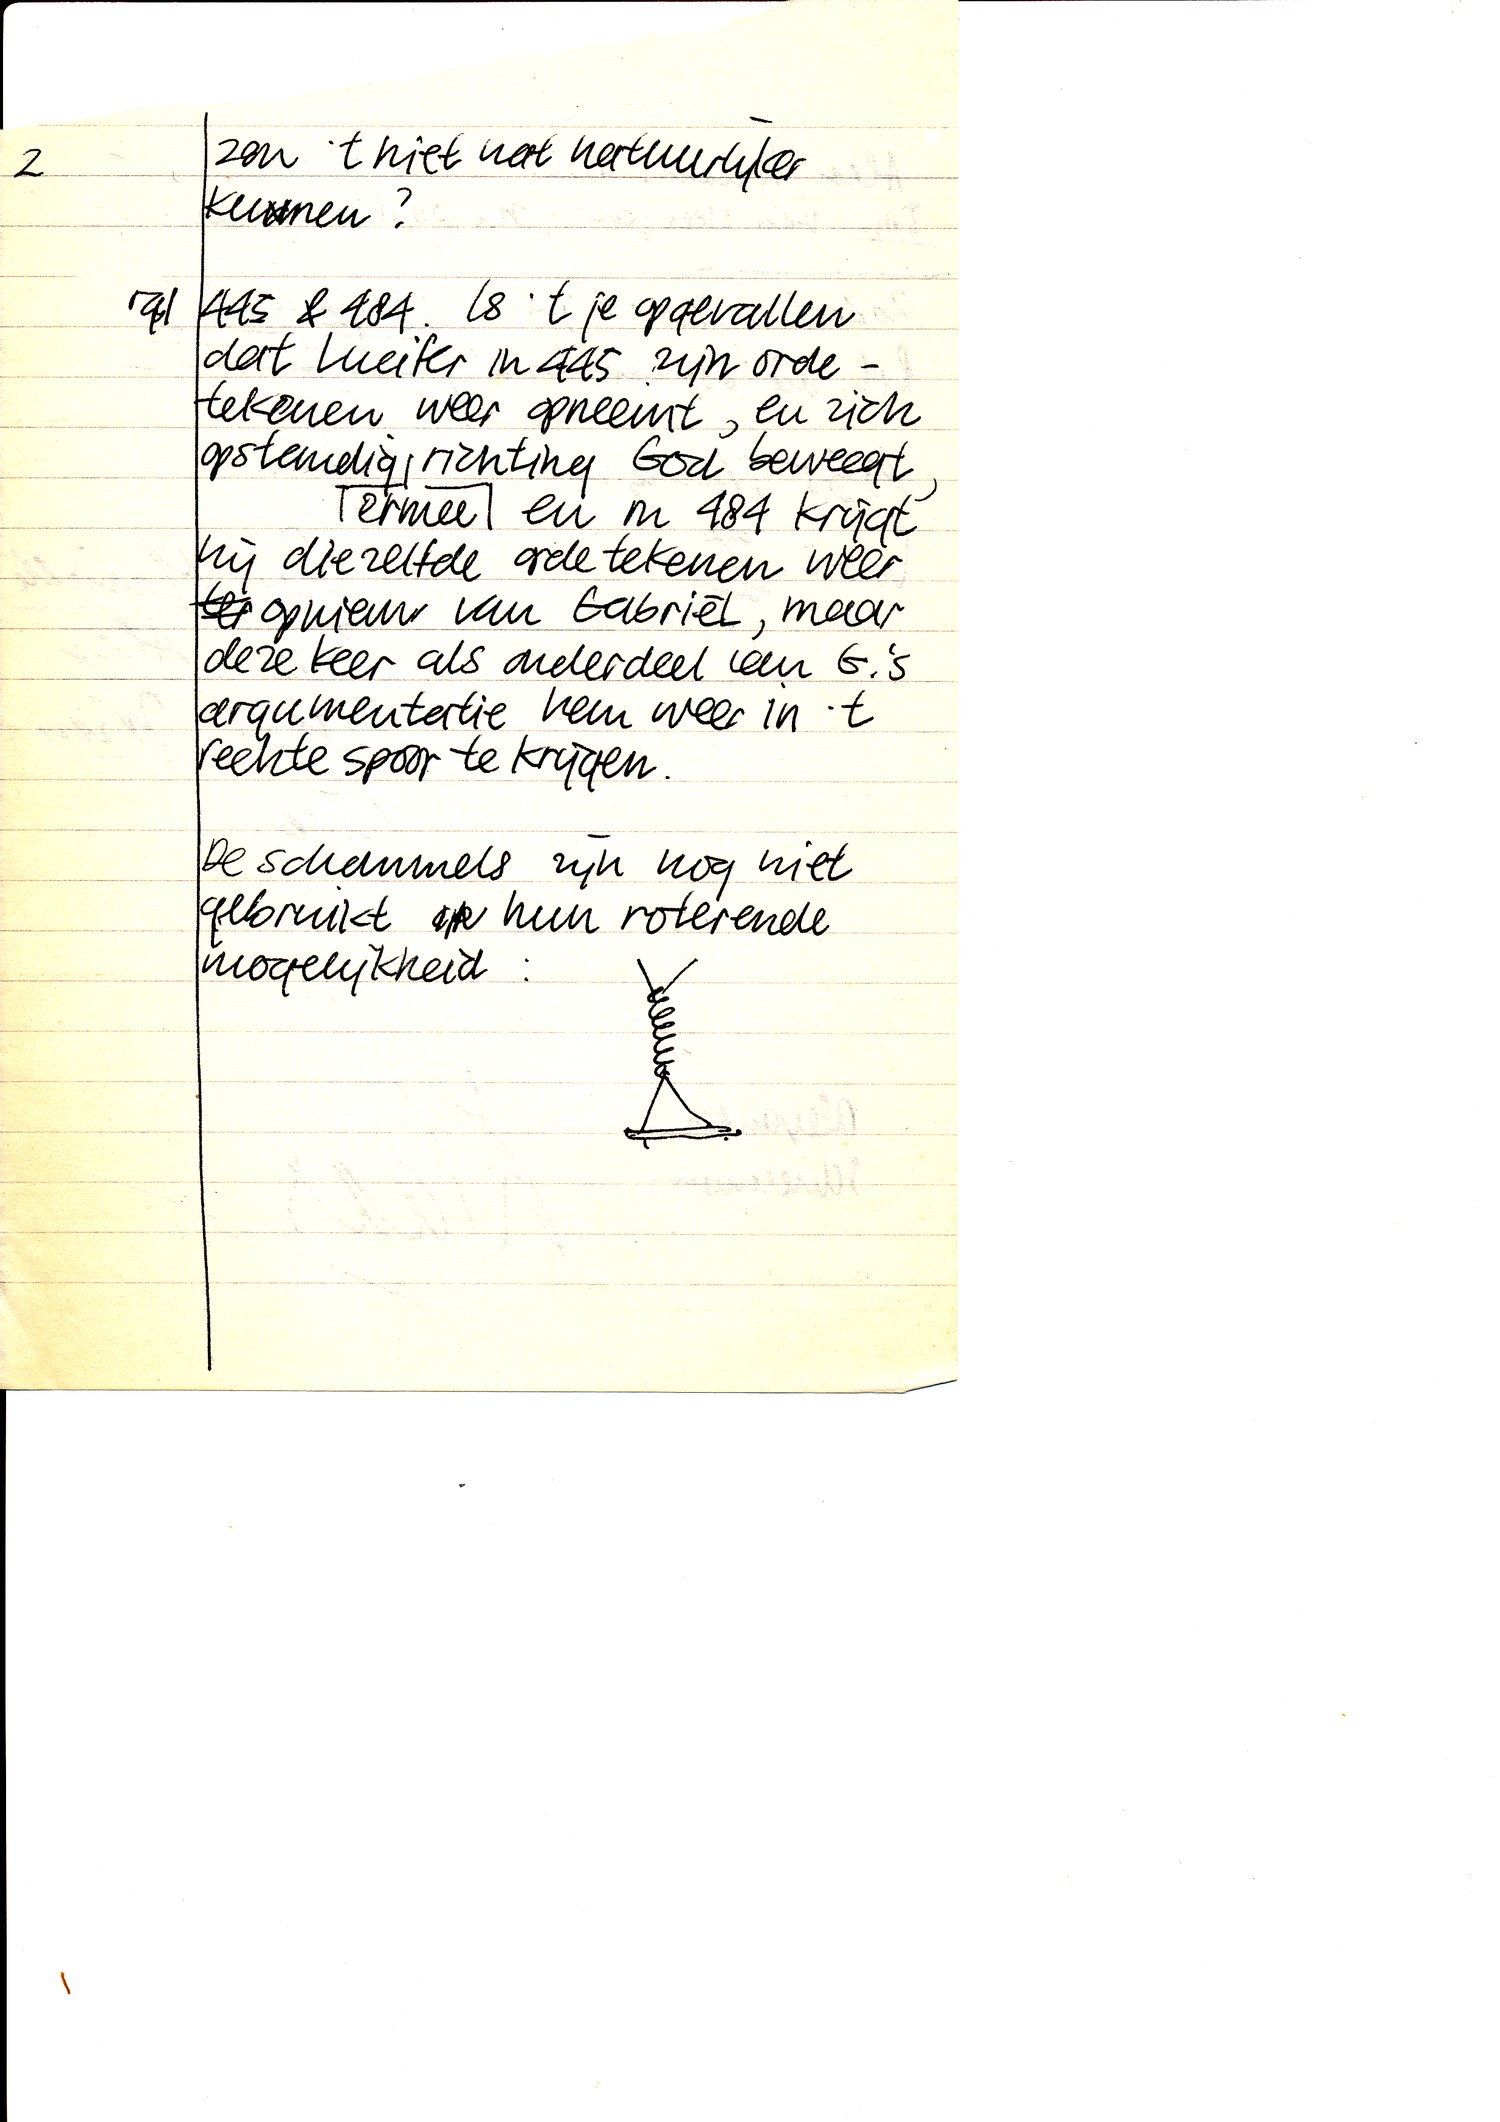 2 zou 't niet wat natuurlijker
kunnen?
rgl 445 & 484. Is 't je opgevallen
dat Lucifer in 445 zijn orde-
tekenen weer opneemt, en zich
opstandig, richting God beweegt,
ermee en in 484 krijgt
hij diezelfde ordetekenen weer
ter opnieuw van Gabriël, maar
deze keer als onderdeel van G.'s
argumentatie hem weer in 't
rechte spoor te krijgen.
De schommels zijn nog niet
gebruikt op hun roterende
mogelijkheid: